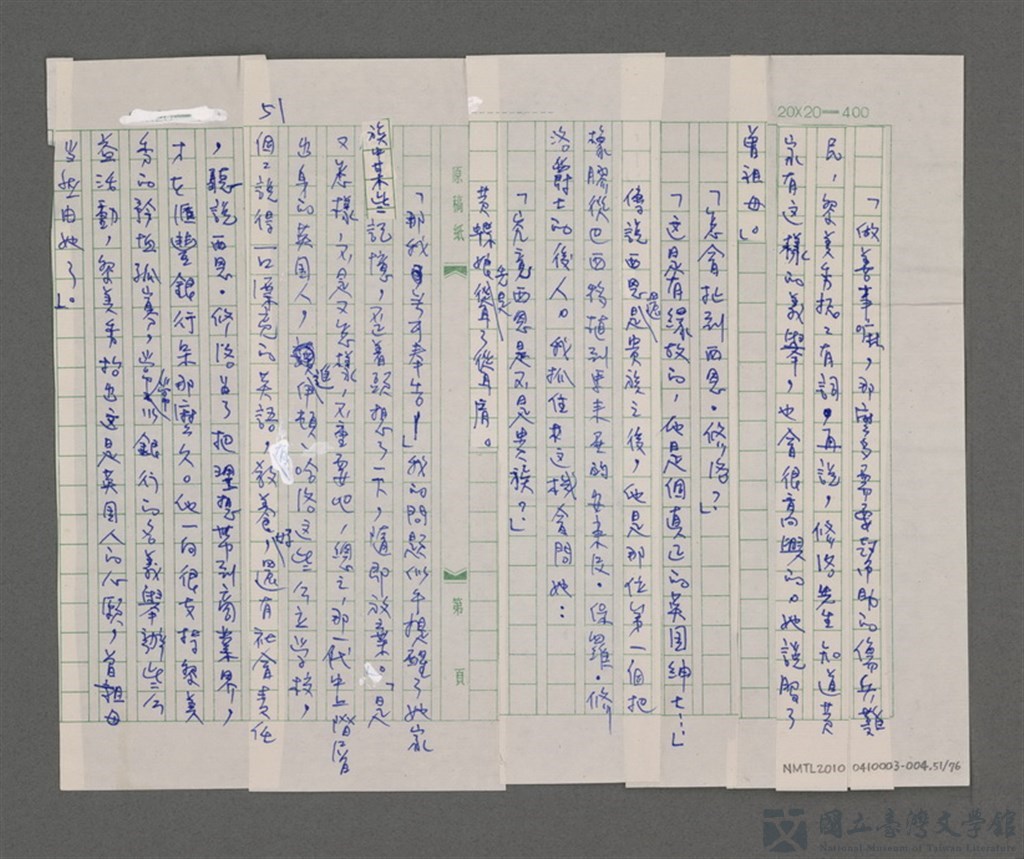 20X20=400
「做善事嘛，那麼多需要幫助的傷兵、難
民，黎美秀振振有詞，再說，修洛先生知道黃
家有這樣的義舉，也會很高興的。她說服了
曾祖母」。
「怎會扯到西恩・修洛？」
「這是有緣故的，他是個真正的英國紳士…」
傳說西恩還是貴族之後，他是那位第一個把
橡膠從巴西移植到東來亞的
・保羅・修
洛爵士的後人。我抓住這機會問她：
「究竟西恩是不是貴族？」
黃蝶娘先是聳了聳肩。
原稿紙
第 頁
「那我可奉告！」我的問題似乎提醒了她家
族中某些記憶，歪著頭想了一下，隨即放棄。「是
又怎樣，不是又怎樣，不重要吧，總之，那一代中上階層
出身的英國人，進伊頓、哈洛這些公立學校，
個個說得一口漂亮的英語，教養好，還有社會責任
51
，聽說西恩・修洛為了把理想帶到商業界，
才在匯豐銀行呆那麼久。他一向很支持黎美
秀的矜恤孤寡，常常以銀行的名義舉辦些公
益活動，黎美秀指出這是英國人的心願，曾祖母
當然由她了」。
NMTL2010 0410003-004.51/76
國立臺灣文學館
National Museum of Taiwan Literature